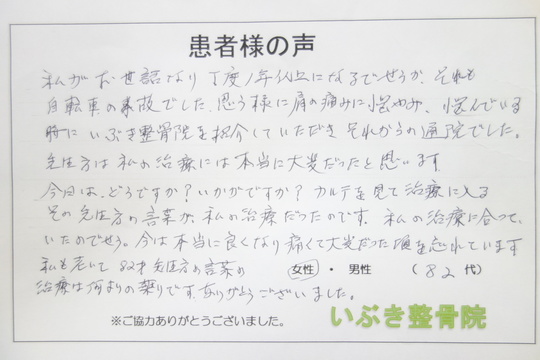 患者様の声
私がお世話なり丁度1年位になるでせうか、それも
自転車の事故でした、思う様に肩の痛みに悩み、悩んでいる
時にいぶき整骨院を紹介していただきそれからの通院でした。
先生方は私の治療には本当に大変だったと思います
今日は、どうですか?いかがですか?カルテを見て治療に入る
その先生方の言葉が、私の治療だったのです、私の治療に合って
いたのでせう。今は本当に良くなり痛くて大変だった頃を忘れています
私も老いて82才先生方の言葉の
女性・男性 (82代)
治療は何よりの薬りです、ありがとうございました。
※ご協力ありがとうございました。
いぶき整骨院